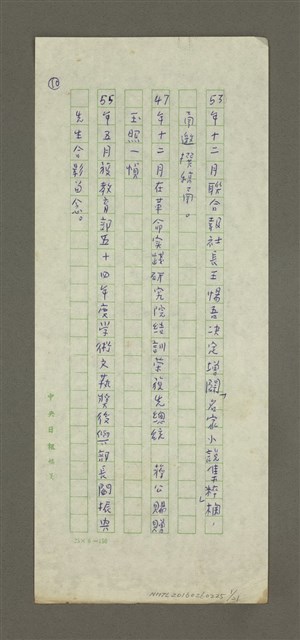 53年十二月聯合報社長王惕吾決定增闢「名家小說集粹」欄,
函邀撰稿函。
47年十二月在革命實踐研究院結訓榮獲先總統 蔣公賜贈
玉照一幀
55年五月獲教育部五十四年度學術文藝獎後與部長閻振興
先生合影留念。
中央日報稿紙